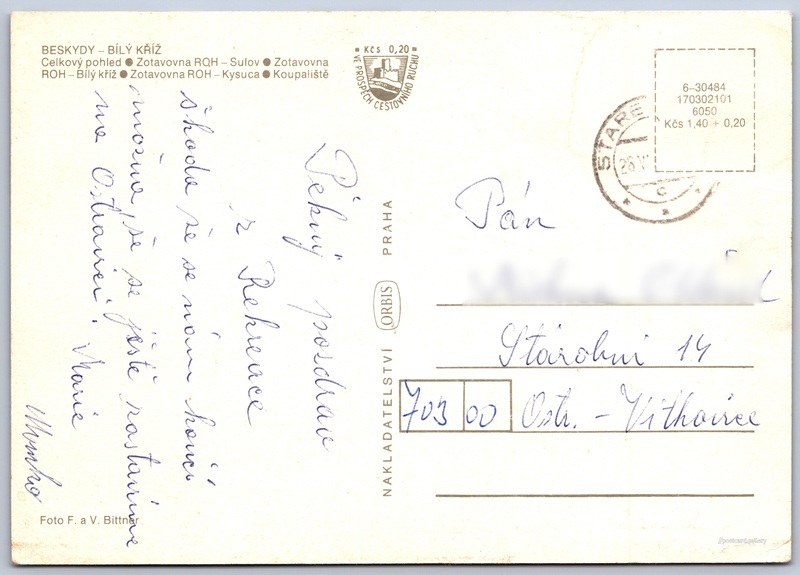 BESKYDY – BÍLÝ KŘÍŽ
Celkový pohled ● Zotavovna ROH – Sulov ● Zotavovna
ROH – Bílý kříž ● Zotavovna ROH – Kysuca ● Koupaliště
Kčs 0,20
VE PROSPĚCH CESTOVNÍHO RUCHU
6–30484
170302101
6050
Kčs 1,40 + 0,20
STARÉ
Pěkný pozdrav
z Rekreace
škoda že se nám končí
možná, že se ještě zastavíme
na Ostravici.
Marie
NAKLADATELSTVÍ ORBIS PRAHA
Pán
14
703 00 Ostr. – Vítkovice
Foto F. a V. Bittner